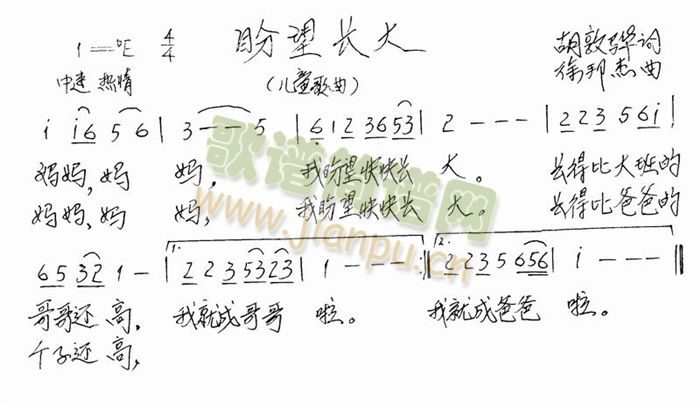 盼望长大
1=♭E 4/4
胡敦骅词
中速 热情
(儿童歌曲)
徐邦杰曲
i i6 5 6 | 3 - - 5 | 6 1 2 36 53 | 2 - - - | 2 2 3 5 6i |
妈妈,妈 妈, 我盼望快快长 大。 长得比大班的
妈妈,妈 妈, 我盼望快快长 大。 长得比爸爸的
歌谱简谱网
www.jianpu.cn
6 5 32 1 - | 1. 2 2 3 53 23 | 1 - - - :| 2. 2 2 3 5 656 | i - - - ||
哥哥还 高, 我就成哥哥 啦。 我就成爸爸 啦。
个子还 高,